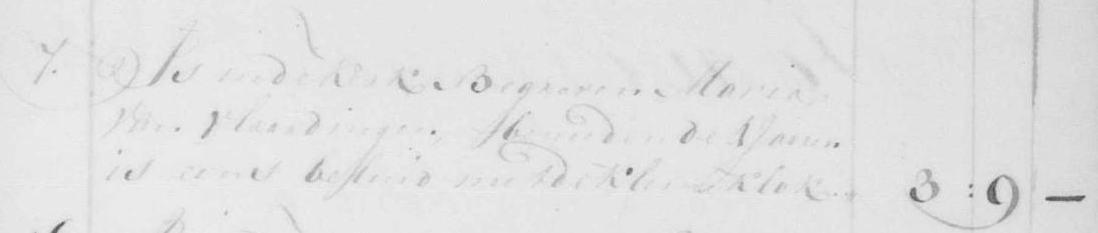 7. Is in de Kerk Begraven Maria
Van Vlaardingen,
is eens beluid met de kleine klok 3 : 9 —